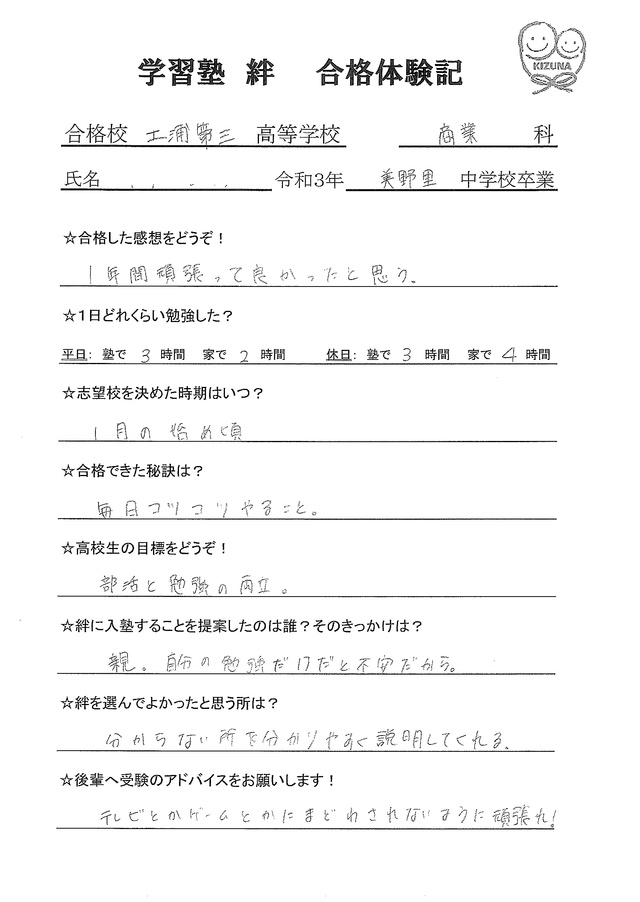 学習塾 絆 合格体験記
KIZUNA
合格校 土浦第三 高等学校 商業 科
氏名 令和3年 美野里 中学校卒業
☆合格した感想をどうぞ！
1年間頑張って良かったと思う。
☆1日どれくらい勉強した？
平日：塾で 3 時間 家で 2 時間 休日：塾で 3 時間 家で 4 時間
☆志望校を決めた時期はいつ？
1月の始め頃
☆合格できた秘訣は？
毎日コツコツやること。
☆高校生の目標をどうぞ！
部活と勉強の両立。
☆絆に入塾することを提案したのは誰？そのきっかけは？
親。自分の勉強だけだと不安だから。
☆絆を選んでよかったと思う所は？
分からない所を分かりやすく説明してくれる。
☆後輩へ受験のアドバイスをお願いします！
テレビとかゲームとかにまどわされないように頑張れ！